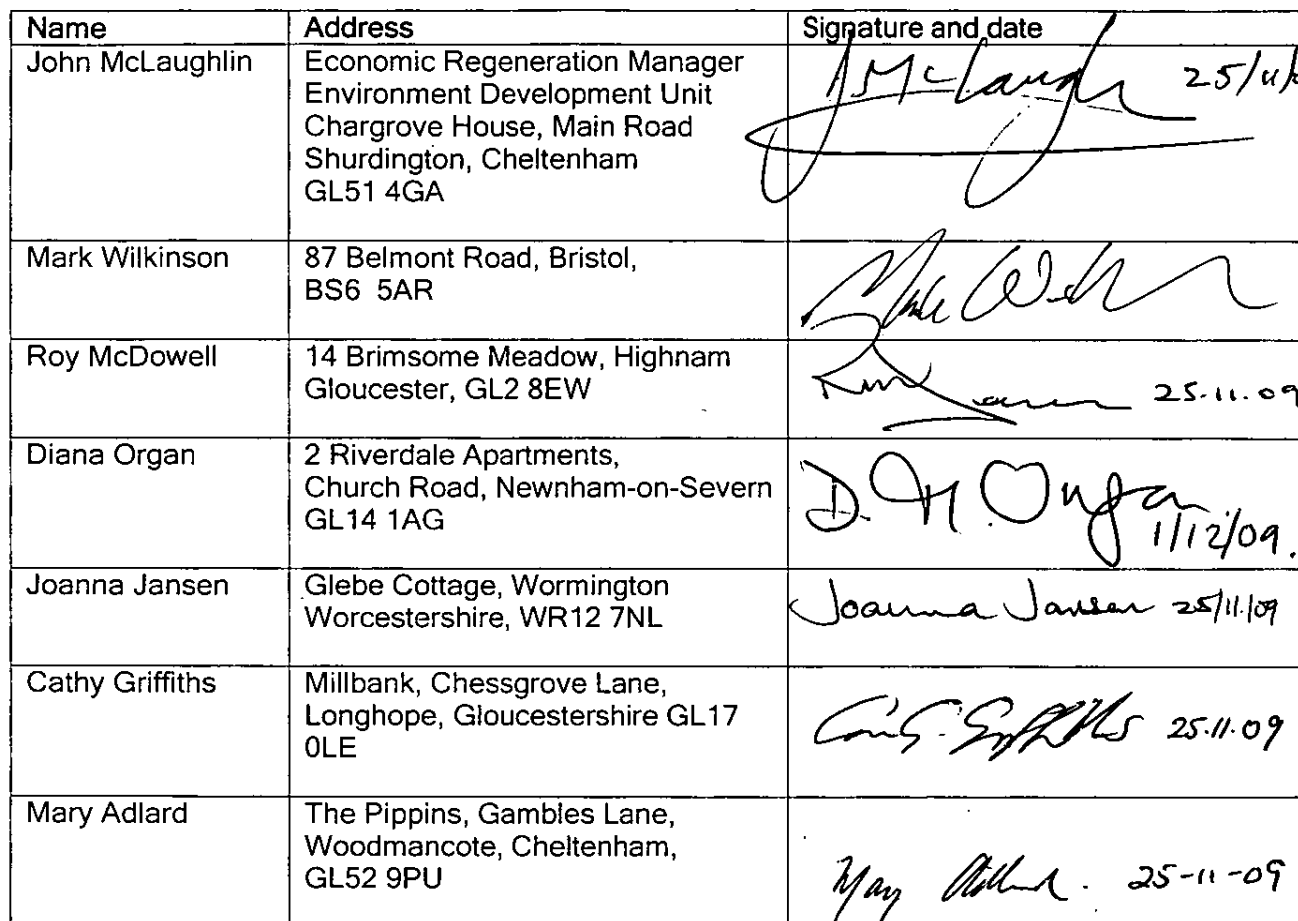 Name Address Signature and date
John McLaughlin Economic Regeneration Manager
Environment Development Unit
Chargrove House, Main Road
Shurdington, Cheltenham
GL51 4GA
J McLaugh 25/11/
Mark Wilkinson 87 Belmont Road, Bristol,
BS6 5AR
Mark
Roy McDowell 14 Brimsome Meadow, Highnam
Gloucester, GL2 8EW
25.11.09
Diana Organ 2 Riverdale Apartments,
Church Road, Newnham-on-Severn
GL14 1AG
D. M. Organ
1/12/09.
Joanna Jansen Glebe Cottage, Wormington
Worcestershire, WR12 7NL
Joanna Jansen 25/11/09
Cathy Griffiths Millbank, Chessgrove Lane,
Longhope, Gloucestershire GL17
0LE
Griffiths 25.11.09
Mary Adlard The Pippins, Gambles Lane,
Woodmancote, Cheltenham,
GL52 9PU
Mary Adlard. 25-11-09